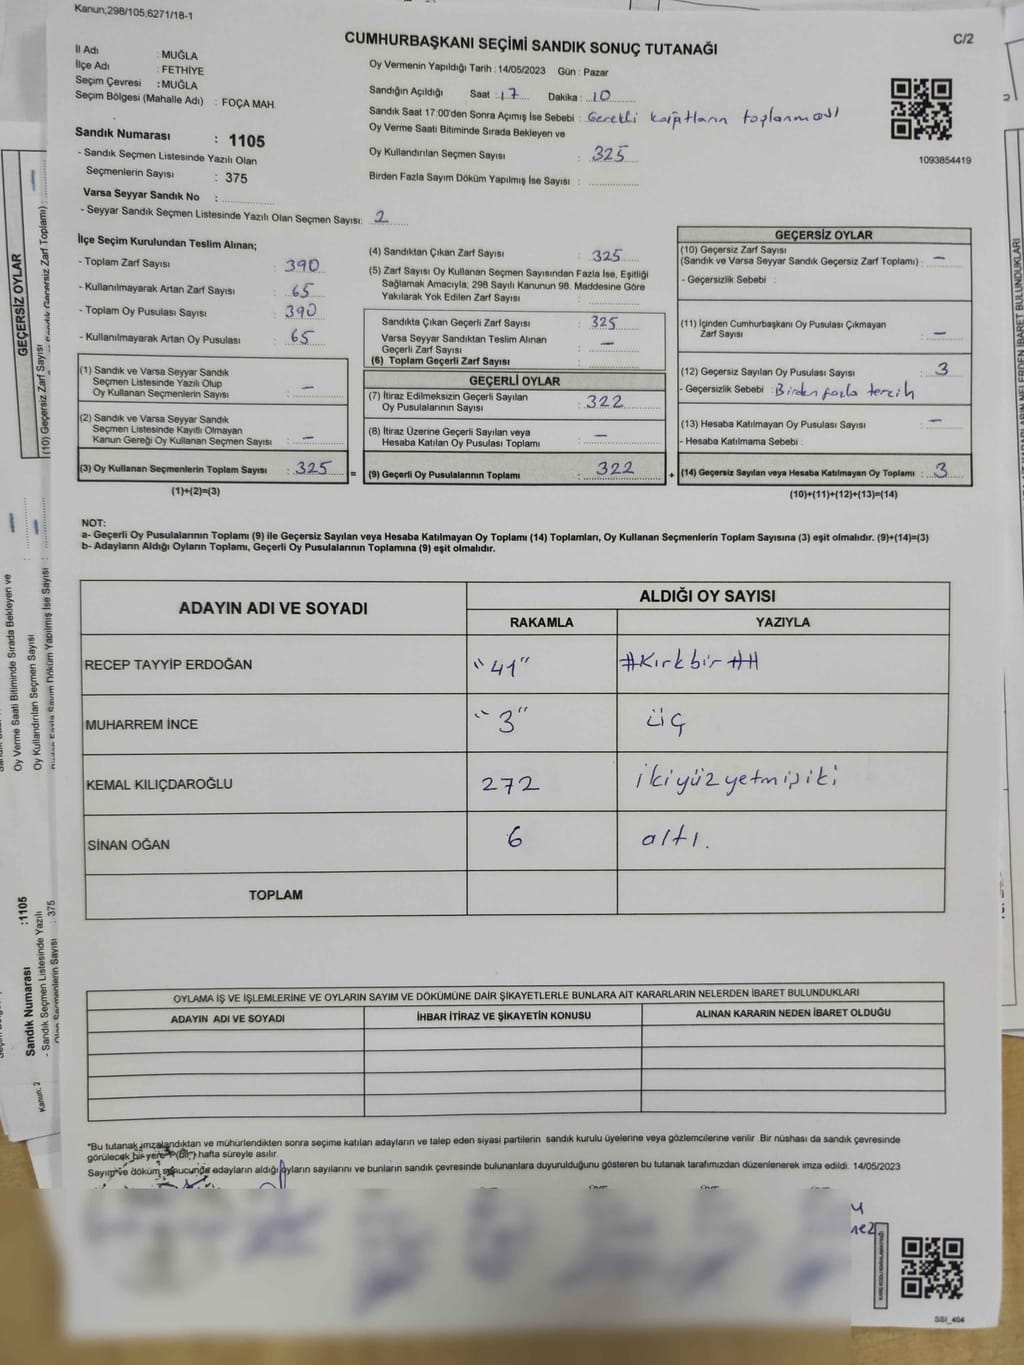 Kanun,298/105,6271/18-1
C/2
CUMHURBAŞKANI SEÇİMİ SANDIK SONUÇ TUTANAĞI
İl Adı : MUĞLA
İlçe Adı : FETHİYE
Seçim Çevresi : MUĞLA
Seçim Bölgesi (Mahalle Adı) : FOÇA MAH.
Sandık Numarası : 1105
- Sandık Seçmen Listesinde Yazılı Olan
Seçmenlerin Sayısı : 375
Varsa Seyyar Sandık No :
- Seyyar Sandık Seçmen Listesinde Yazılı Olan Seçmen Sayısı: 2
Oy Vermenin Yapıldığı Tarih : 14/05/2023 Gün : Pazar
Sandığın Açıldığı Saat : 17 Dakika : 10
Sandık Saat 17:00'den Sonra Açımış İse Sebebi : Gerekli kağıtların toplanması
Oy Verme Saati Bitiminde Sırada Bekleyen ve
Oy Kullandırılan Seçmen Sayısı : 325
Birden Fazla Sayım Döküm Yapılmış İse Sayısı :
1093854419
İlçe Seçim Kurulundan Teslim Alınan;
- Toplam Zarf Sayısı : 390
- Kullanılmayarak Artan Zarf Sayısı : 65
- Toplam Oy Pusulası Sayısı : 390
- Kullanılmayarak Artan Oy Pusulası : 65
(1) Sandık ve Varsa Seyyar Sandık
Seçmen Listesinde Yazılı Olup
Oy Kullanan Seçmenlerin Sayısı : –
(2) Sandık ve Varsa Seyyar Sandık
Seçmen Listesinde Kayıtlı Olmayan
Kanun Gereği Oy Kullanan Seçmen Sayısı : –
(3) Oy Kullanan Seçmenlerin Toplam Sayısı : 325 =
(1)+(2)=(3)
(4) Sandıktan Çıkan Zarf Sayısı : 325
(5) Zarf Sayısı Oy Kullanan Seçmen Sayısından Fazla İse, Eşitliği
Sağlamak Amacıyla, 298 Sayılı Kanunun 98. Maddesine Göre
Yakılarak Yok Edilen Zarf Sayısı :
Sandıkta Çıkan Geçerli Zarf Sayısı : 325
Varsa Seyyar Sandıktan Teslim Alınan
Geçerli Zarf Sayısı : –
(6) Toplam Geçerli Zarf Sayısı :
GEÇERLİ OYLAR
(7) İtiraz Edilmeksizin Geçerli Sayılan
Oy Pusulalarının Sayısı : 322
(8) İtiraz Üzerine Geçerli Sayılan veya
Hesaba Katılan Oy Pusulası Toplamı : –
(9) Geçerli Oy Pusulalarının Toplamı : 322 +
GEÇERSİZ OYLAR
(10) Geçersiz Zarf Sayısı
(Sandık ve Varsa Seyyar Sandık Geçersiz Zarf Toplamı) : –
- Geçersizlik Sebebi :
(11) İçinden Cumhurbaşkanı Oy Pusulası Çıkmayan
Zarf Sayısı : –
(12) Geçersiz Sayılan Oy Pusulası Sayısı : 3
- Geçersizlik Sebebi : Birden fazla tercih
(13) Hesaba Katılmayan Oy Pusulası Sayısı : –
- Hesaba Katılmama Sebebi :
(14) Geçersiz Sayılan veya Hesaba Katılmayan Oy Toplamı : 3
(10)+(11)+(12)+(13)=(14)
NOT:
a- Geçerli Oy Pusulalarının Toplamı (9) ile Geçersiz Sayılan veya Hesaba Katılmayan Oy Toplamı (14) Toplamları, Oy Kullanan Seçmenlerin Toplam Sayısına (3) eşit olmalıdır. (9)+(14)=(3)
b- Adayların Aldığı Oyların Toplamı, Geçerli Oy Pusulalarının Toplamına (9) eşit olmalıdır.
ADAYIN ADI VE SOYADI
ALDIĞI OY SAYISI
RAKAMLA YAZIYLA
RECEP TAYYİP ERDOĞAN "41" #Kırkbir##
MUHARREM İNCE "3" üç
KEMAL KILIÇDAROĞLU 272 ikiyüzyetmişiki
SİNAN OĞAN 6 altı.
TOPLAM
OYLAMA İŞ VE İŞLEMLERİNE VE OYLARIN SAYIM VE DÖKÜMÜNE DAİR ŞİKAYETLERLE BUNLARA AİT KARARLARIN NELERDEN İBARET BULUNDUKLARI
ADAYIN ADI VE SOYADI İHBAR İTİRAZ VE ŞİKAYETİN KONUSU ALINAN KARARIN NEDEN İBARET OLDUĞU
*Bu tutanak imzalandıktan ve mühürlendikten sonra seçime katılan adayların ve talep eden siyasi partilerin sandık kurulu üyelerine veya gözlemcilerine verilir. Bir nüshası da sandık çevresinde
görülecek bir yere 1 (Bir) hafta süreyle asılır.
Sayım ve döküm sonucunda adayların aldığı oyların sayılarını ve bunların sandık çevresinde bulunanlara duyurulduğunu gösteren bu tutanak tarafımızdan düzenlenerek imza edildi. 14/05/2023
SSI_404
GEÇERSİZ OYLAR
(10) Geçersiz Zarf Sayısı
Oy Verme Saati Bitiminde Sırada Bekleyen ve
Oy Kullandırılan Seçmen Sayısı
Sandık Numarası :1105
- Sandık Seçmen Listesinde Yazılı
: 375